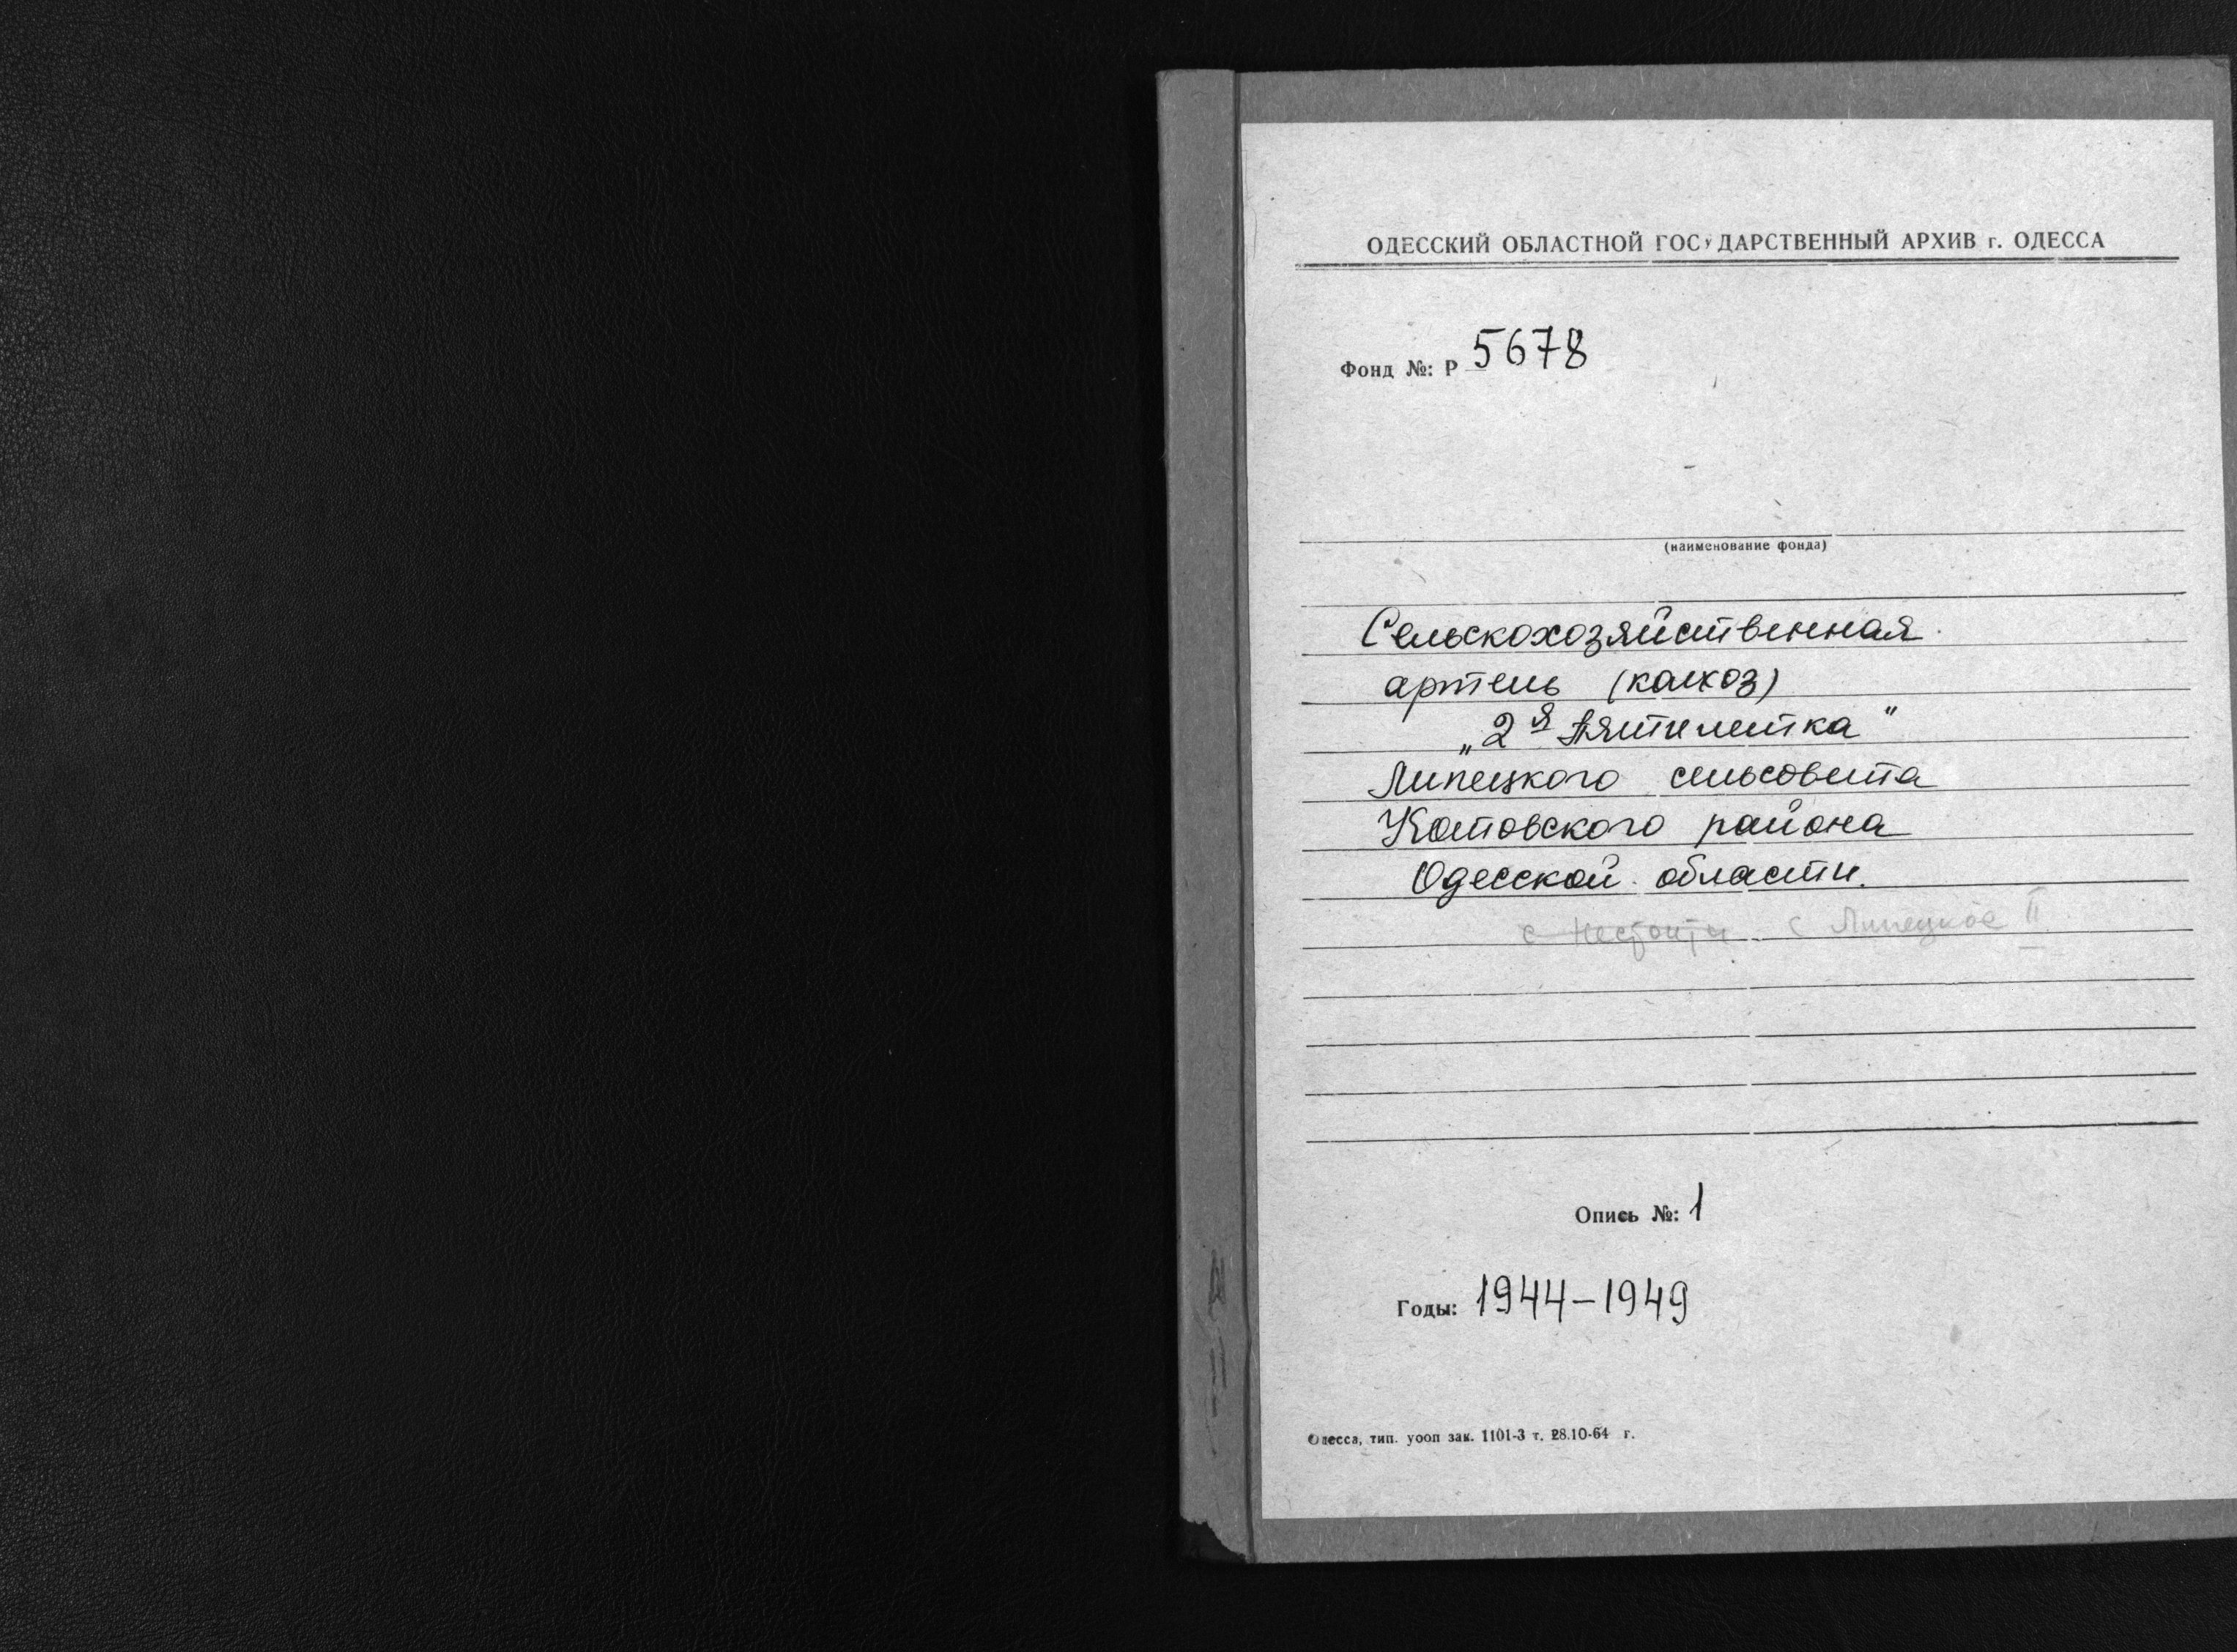 ОДЕССКИЙ ОБЛАСТНОЙ ГОСУДАРСТВЕННЫЙ АРХИВ г. ОДЕССА
Фонд №: Р 5678
(наименование фонда)
Сельскохозяйственная
артель (колхоз)
„2я Пятилетка"
Липецкого сельсовета
Котовского района
Одесской области.
с Нестоити с Липецкое II
Опись №: 1
Годы: 1944-1949
Одесса, тип. уооп зак. 1101-3 т. 28.10-64 г.